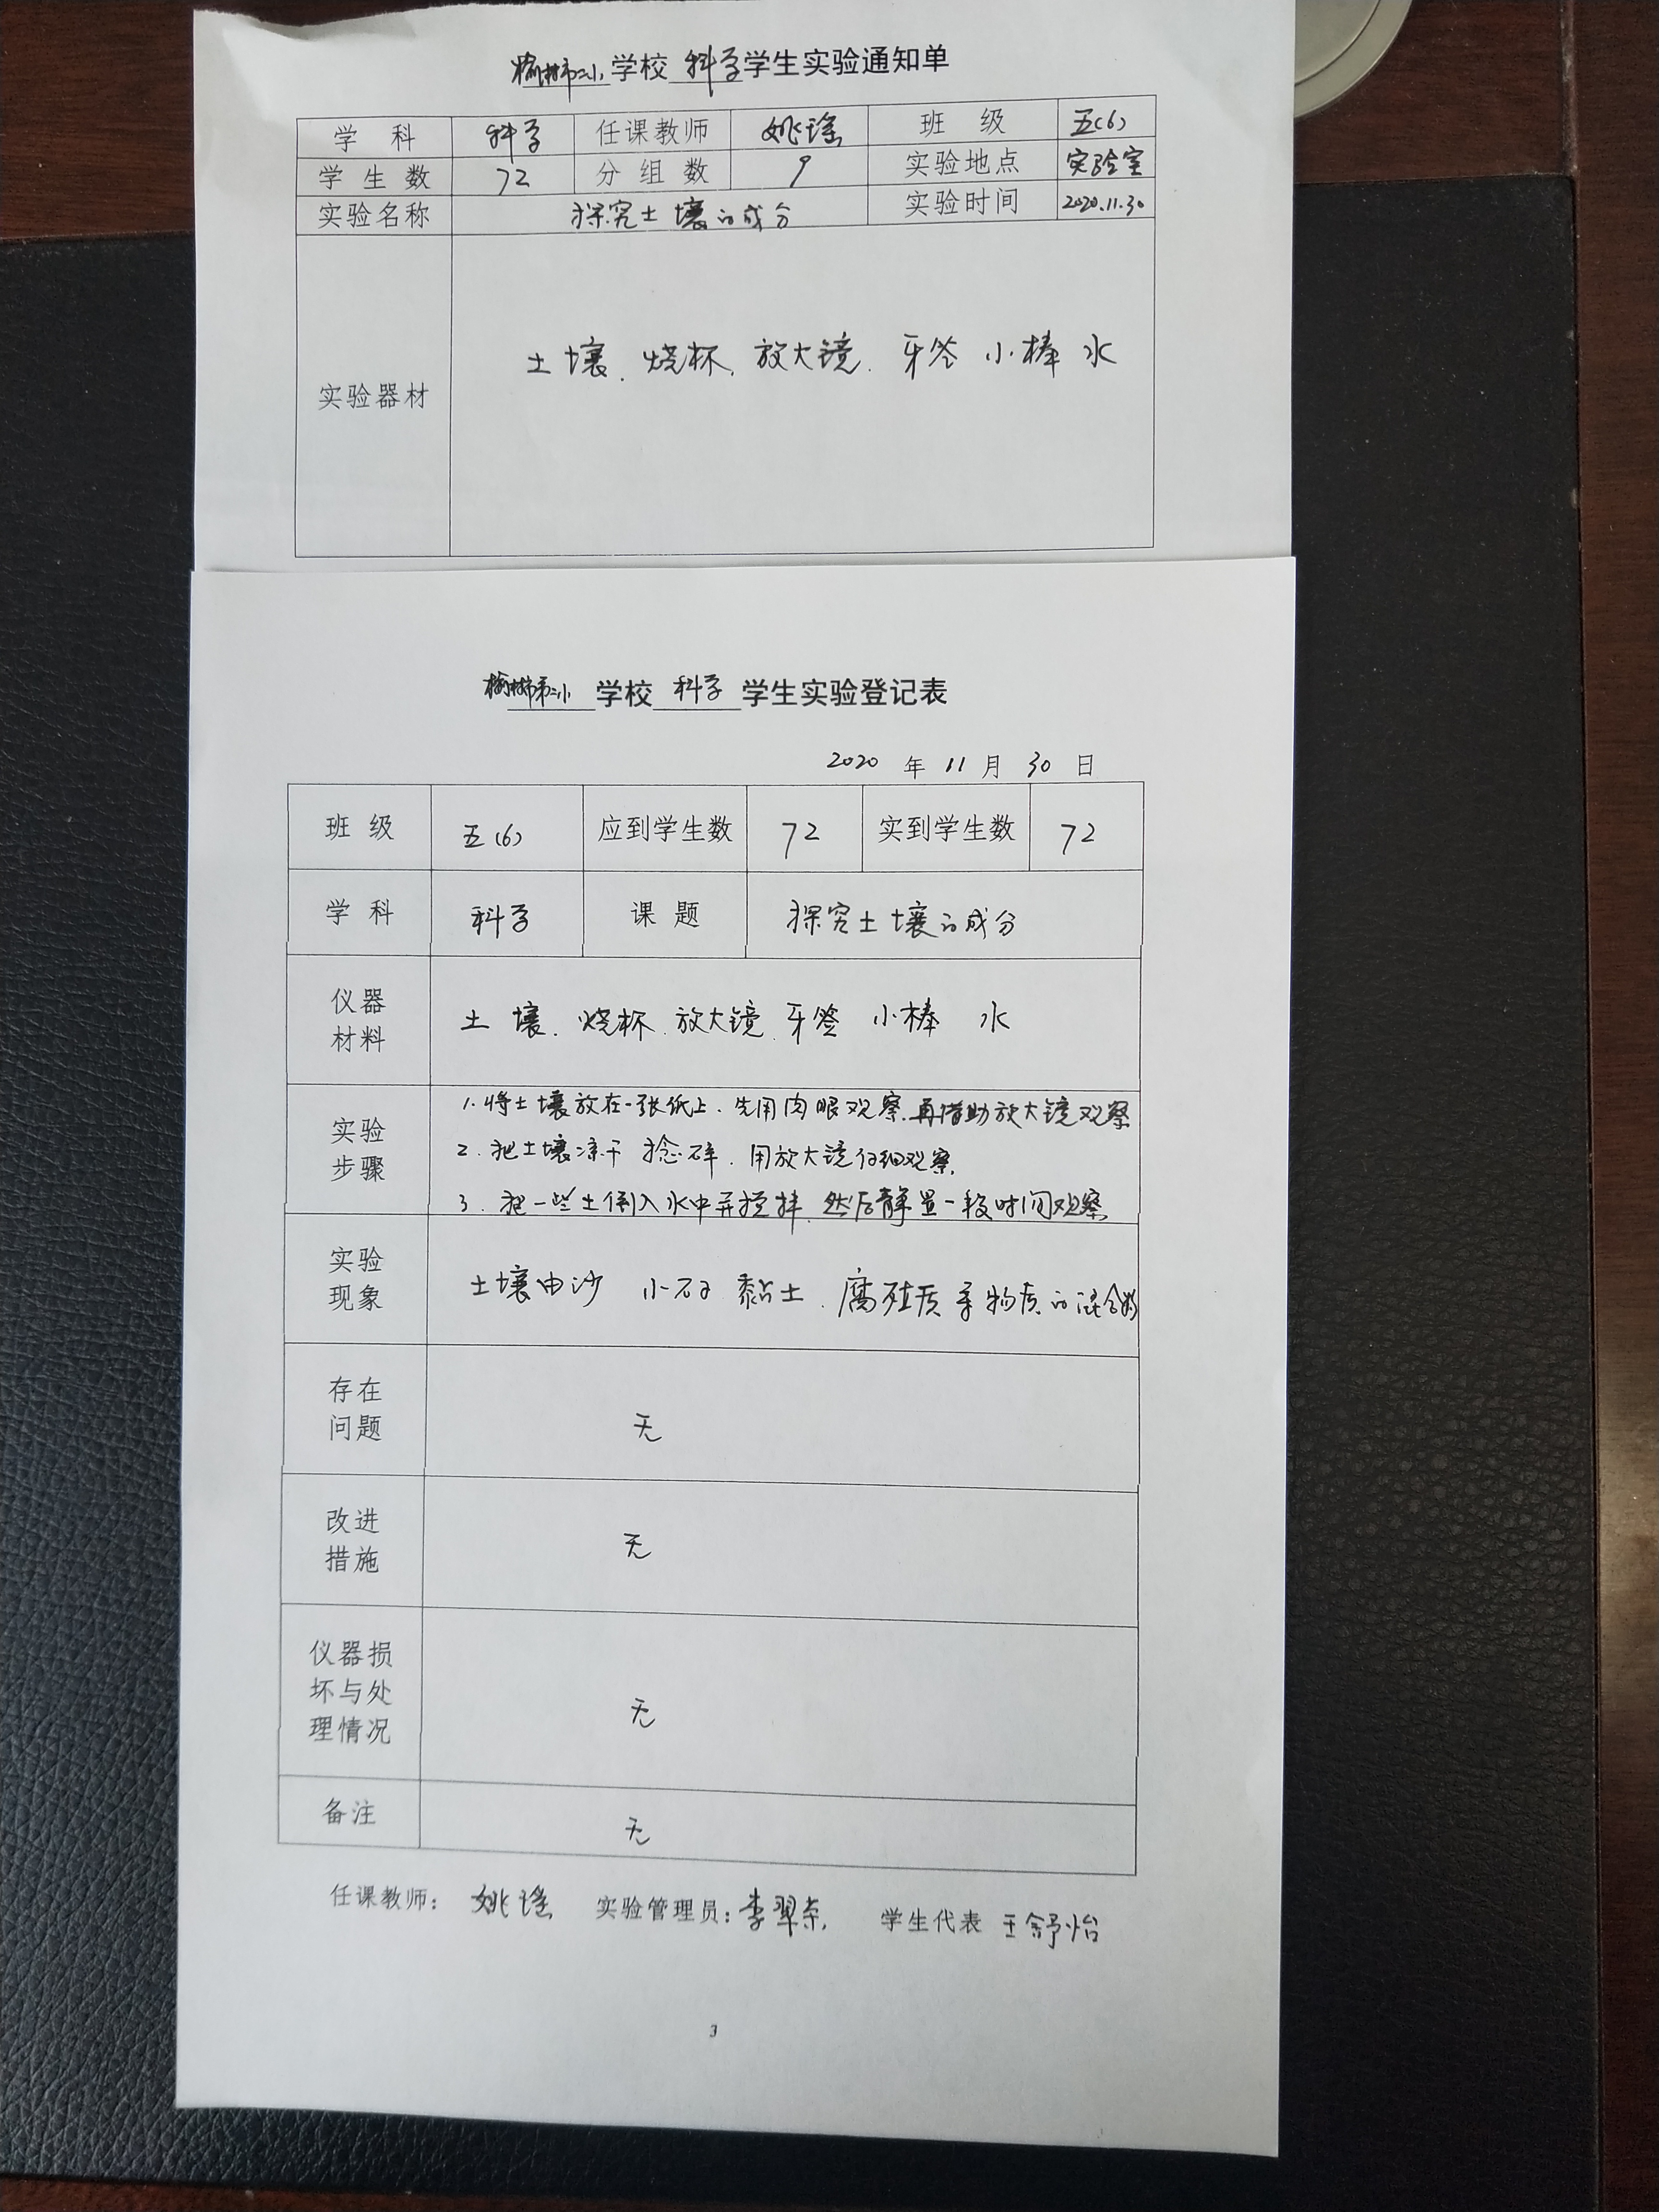 榆林市二小学校 科学学生实验通知单
学 科 科学 任课教师 姚瑶 班 级 五(6)
学 生 数 72 分 组 数 9 实验地点 实验室
实验名称 探究土壤的成分 实验时间 2020.11.30
实验器材 土壤、烧杯、放大镜、牙签 小棒 水
榆林市第二小学校 科学 学生实验登记表
2020 年 11 月 30 日
班 级 五(6) 应到学生数 72 实到学生数 72
学 科 科学 课 题 探究土壤的成分
仪器
材料
土壤、烧杯、放大镜、牙签 小棒 水
实验
步骤
1.将土壤放在一张纸上、先用肉眼观察、再借助放大镜观察
2.把土壤凉干 捻碎、用放大镜仔细观察、
3.把一些土倒入水中并搅拌、然后静置一段时间观察
实验
现象
土壤由沙 小石子 黏土、腐殖质等物质的混合物
存在
问题
无
改进
措施
无
仪器损
坏与处
理情况
无
备注 无
任课教师: 姚瑶 实验管理员: 李翠 学生代表 王舒怡
3